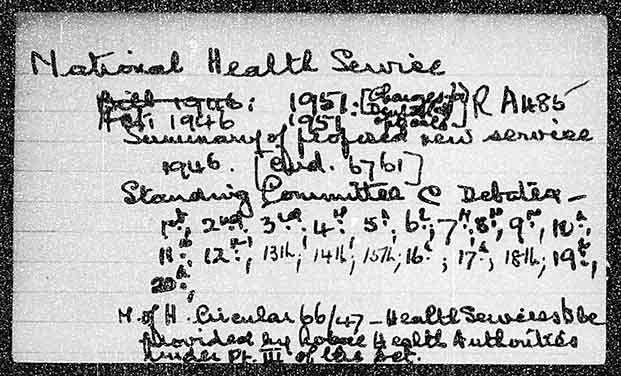 National Health Service
Bill 1946; 1951. [Charges for R A485
Act; 1946 1951
Summary of proposed new service
1946. [Cmd. 6761]
Standing Committee C Debates -
1st, 2nd, 3rd, 4th, 5th, 6th, 7th, 8th, 9th, 10th,
11th, 12th, 13th, 14th, 15th, 16th, 17th, 18th, 19th,
20th,
M. of H. Circular 66/47 - Health Services to be
provided by Local Health Authorities
under Pt. III of the Act.